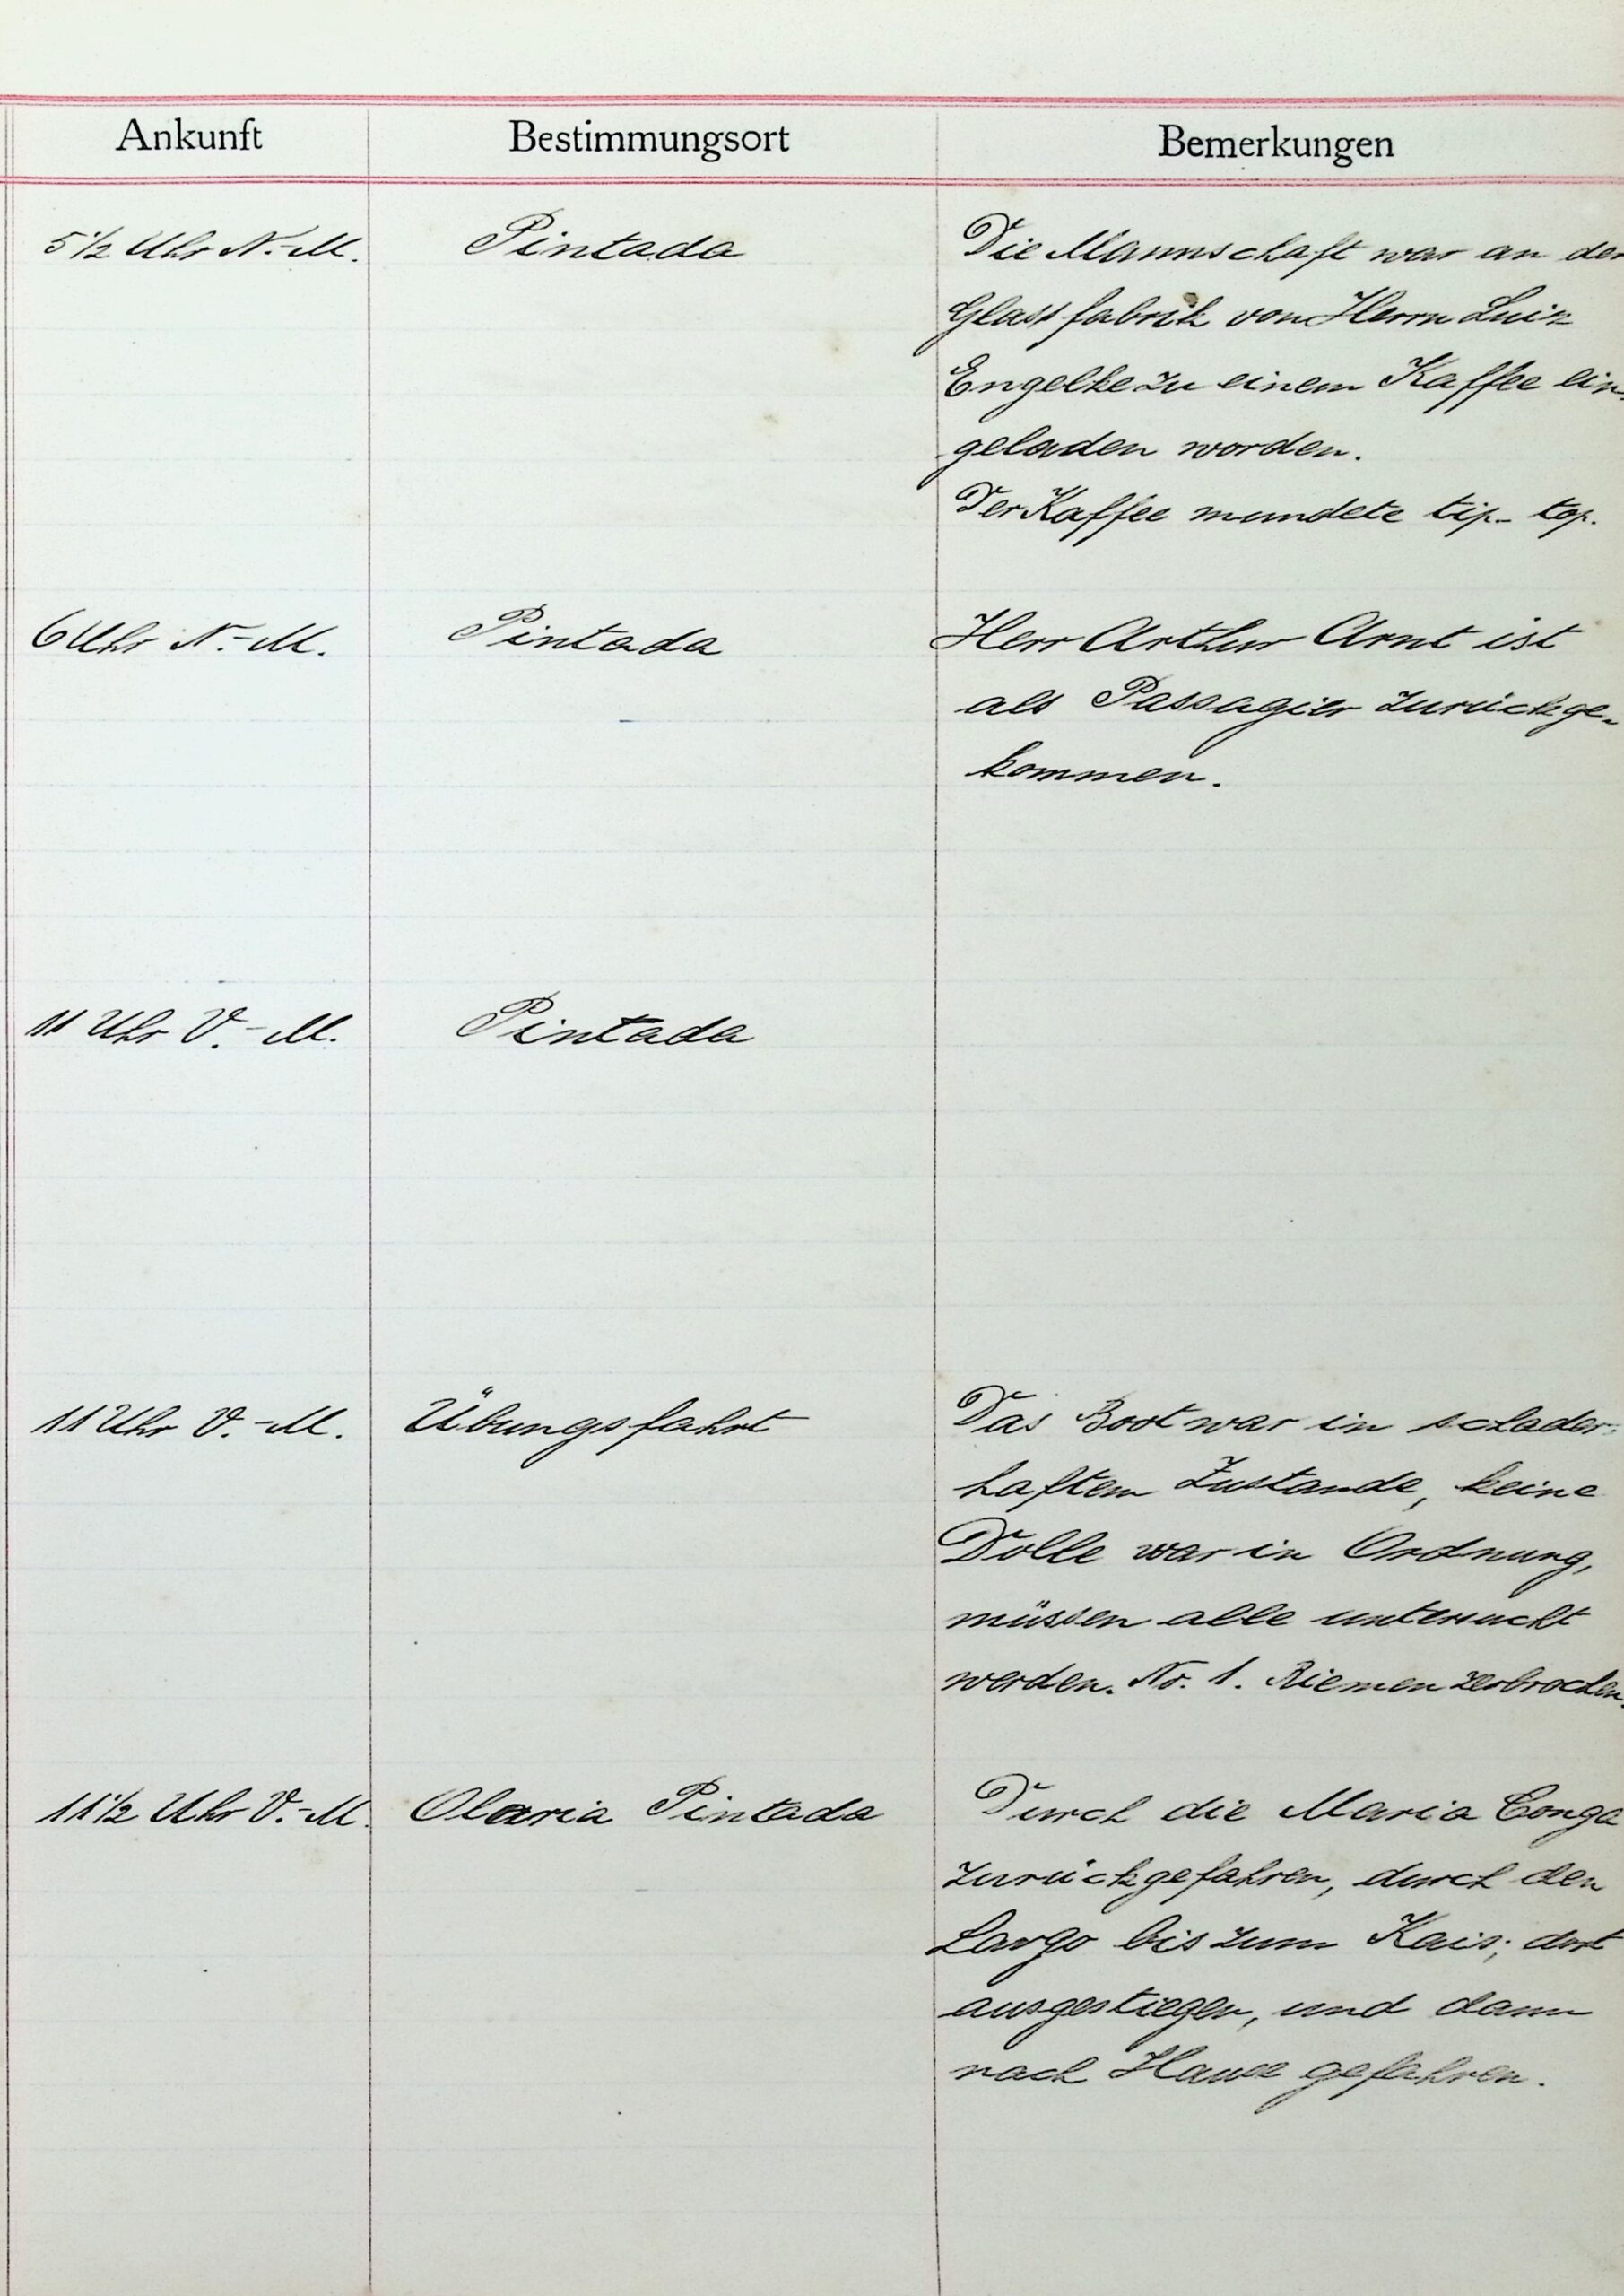 Ankunft Bestimmungsort Bemerkungen
5 1/2 Uhr N.-M. Pintada Die Mannschaft war an der
Glassfabrik von Herrn Luiz
Engelke zu einem Kaffee ein-
geladen worden.
Der Kaffee mundete tip-top.
6 Uhr N.-M. Pintada Herr Arthur Arnt ist
als Passagier zurückge-
kommen.
11 Uhr V.-M. Pintada
11 Uhr V.-M. Übungsfahrt Das Boot war in schader-
haftem Zustande, keine
Dolle war in Ordnung,
müssen alle untersucht
werden. Nr. 1. Riemen zerbrochen.
11 1/2 Uhr V.-M. Olaria Pintada Durch die Maria Conga
zurückgefahren, durch den
Largo bis zum Kais; dort
ausgestiegen, und dann
nach Hause gefahren.